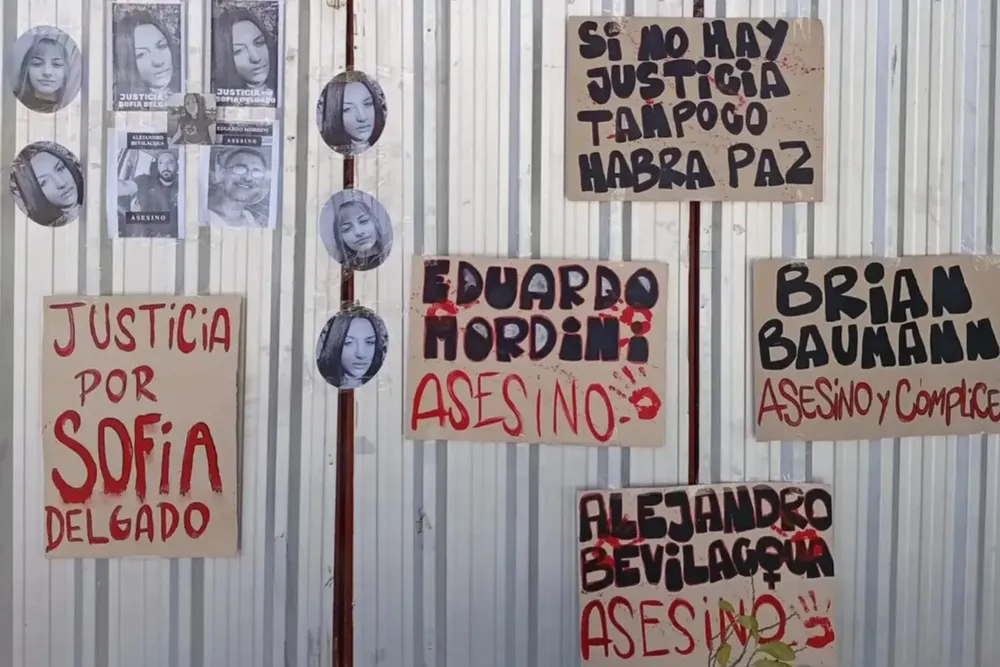 JUSTICIA
SOFIA DELGADO
JUSTICIA
SOFIA DELGADO
ALEJANDRO
BEVILACQUA
ASESINO
EDUARDO MORDINI
ASESINO
Si NO HAY
JUSTiCiA
TAMPOCO
HABRA PAZ
JUSTiCiA
POR
SOFiA
DELGADO
EDUARDO
MORDiNi
ASESiNO
BRiAN
BAUMANN
ASESiNO Y CóMPLiCE
ALEJANDRO
BEViLACQUA
ASESiNO